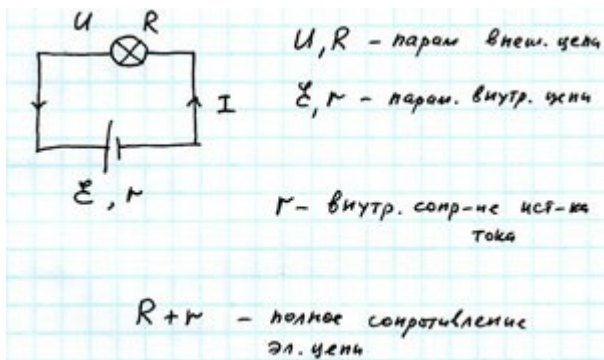 U R
U, R – парам внеш. цепи
I
Ɛ, r – парам. внутр. цепи
Ɛ, r
r – внутр. сопр-ие ист-ка
тока
R + r – полное сопротивление
эл. цепи